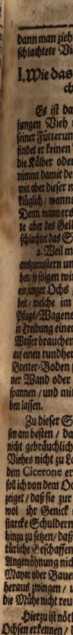 dann man zieh
schlachtete Vi
I. Wie das
Es ist da
jungen Vieh
seiner Futterun
findet er keinen
die Kälber oder
nimmt damit de
wie aber dieser
füglich / wann
Dem
te aber das Gel
schlachte das
2. Weil
junger Ochs
let / welche im
Pflug / Wagen
in Treibung einer
Wasser brauchen
an einen rundher
Breter-Boden
ner Wand oder
spannen / und
ben lassen.
Zu dieser S
sie am besten / de
nicht gebräuchlich
Viehes nicht zu
dem Cicerone er
sol ich von dem Oc
zeiget / daß sie zur
wol ihr Genick
starcke Schuldern
hinzu zu sehen / daß
türliche Beschaffen
Angewöhnung nich
Mayer oder Bauer
heraus zwingen /
die Mühe nicht
Hierzu ist nöt
Ochsen erkennen